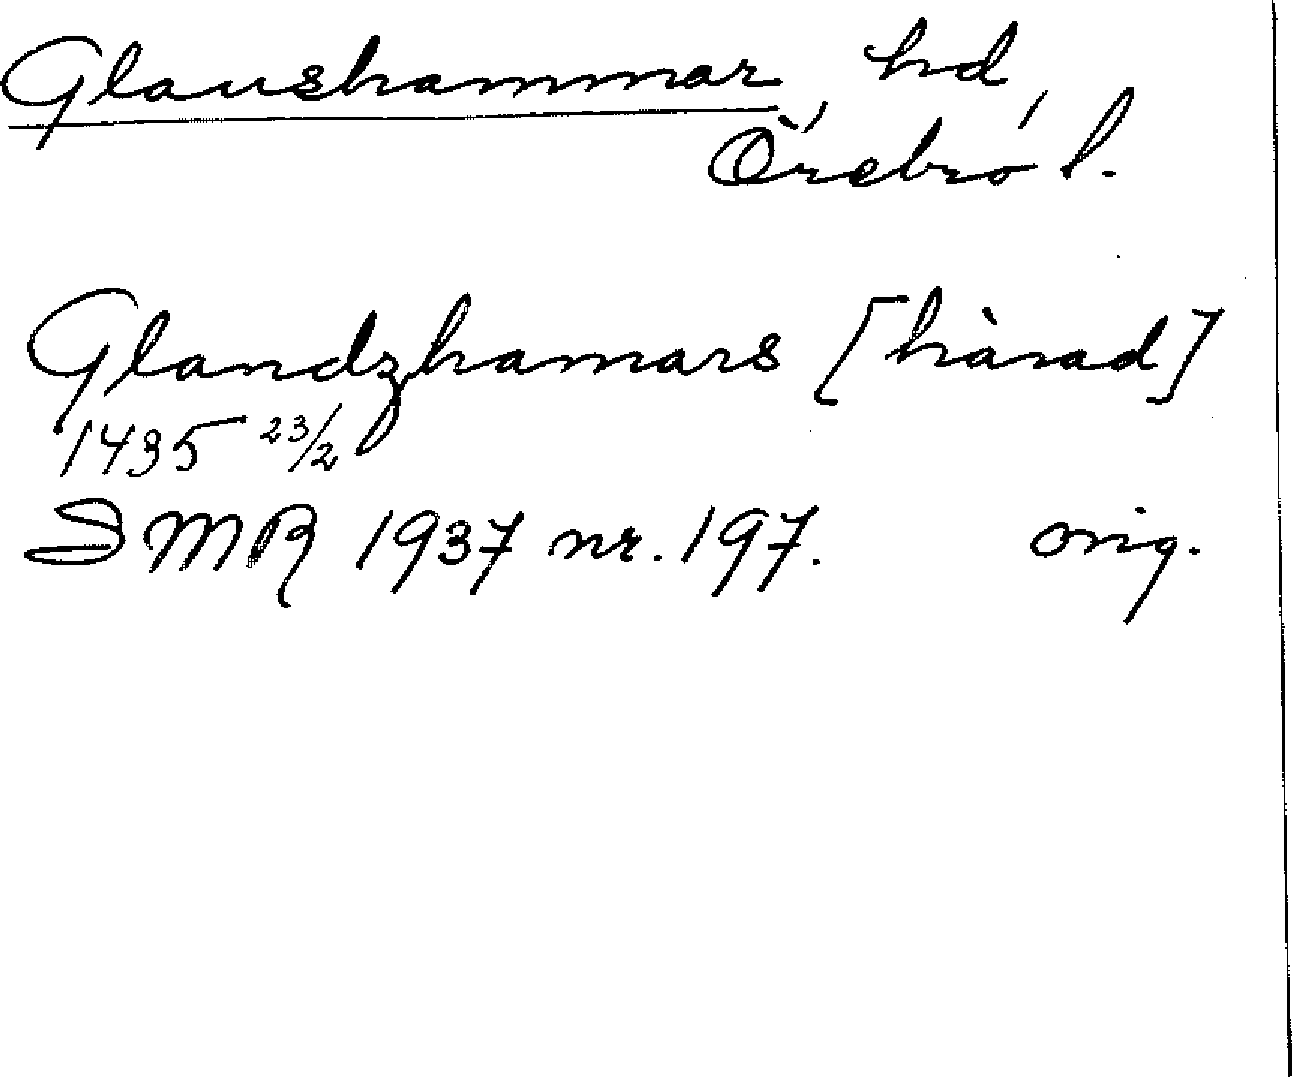 Glanshammar hd,
Örebro l.
Glandzhamars [härad]
1435 23/2
SMR 1937 nr. 197. orig.